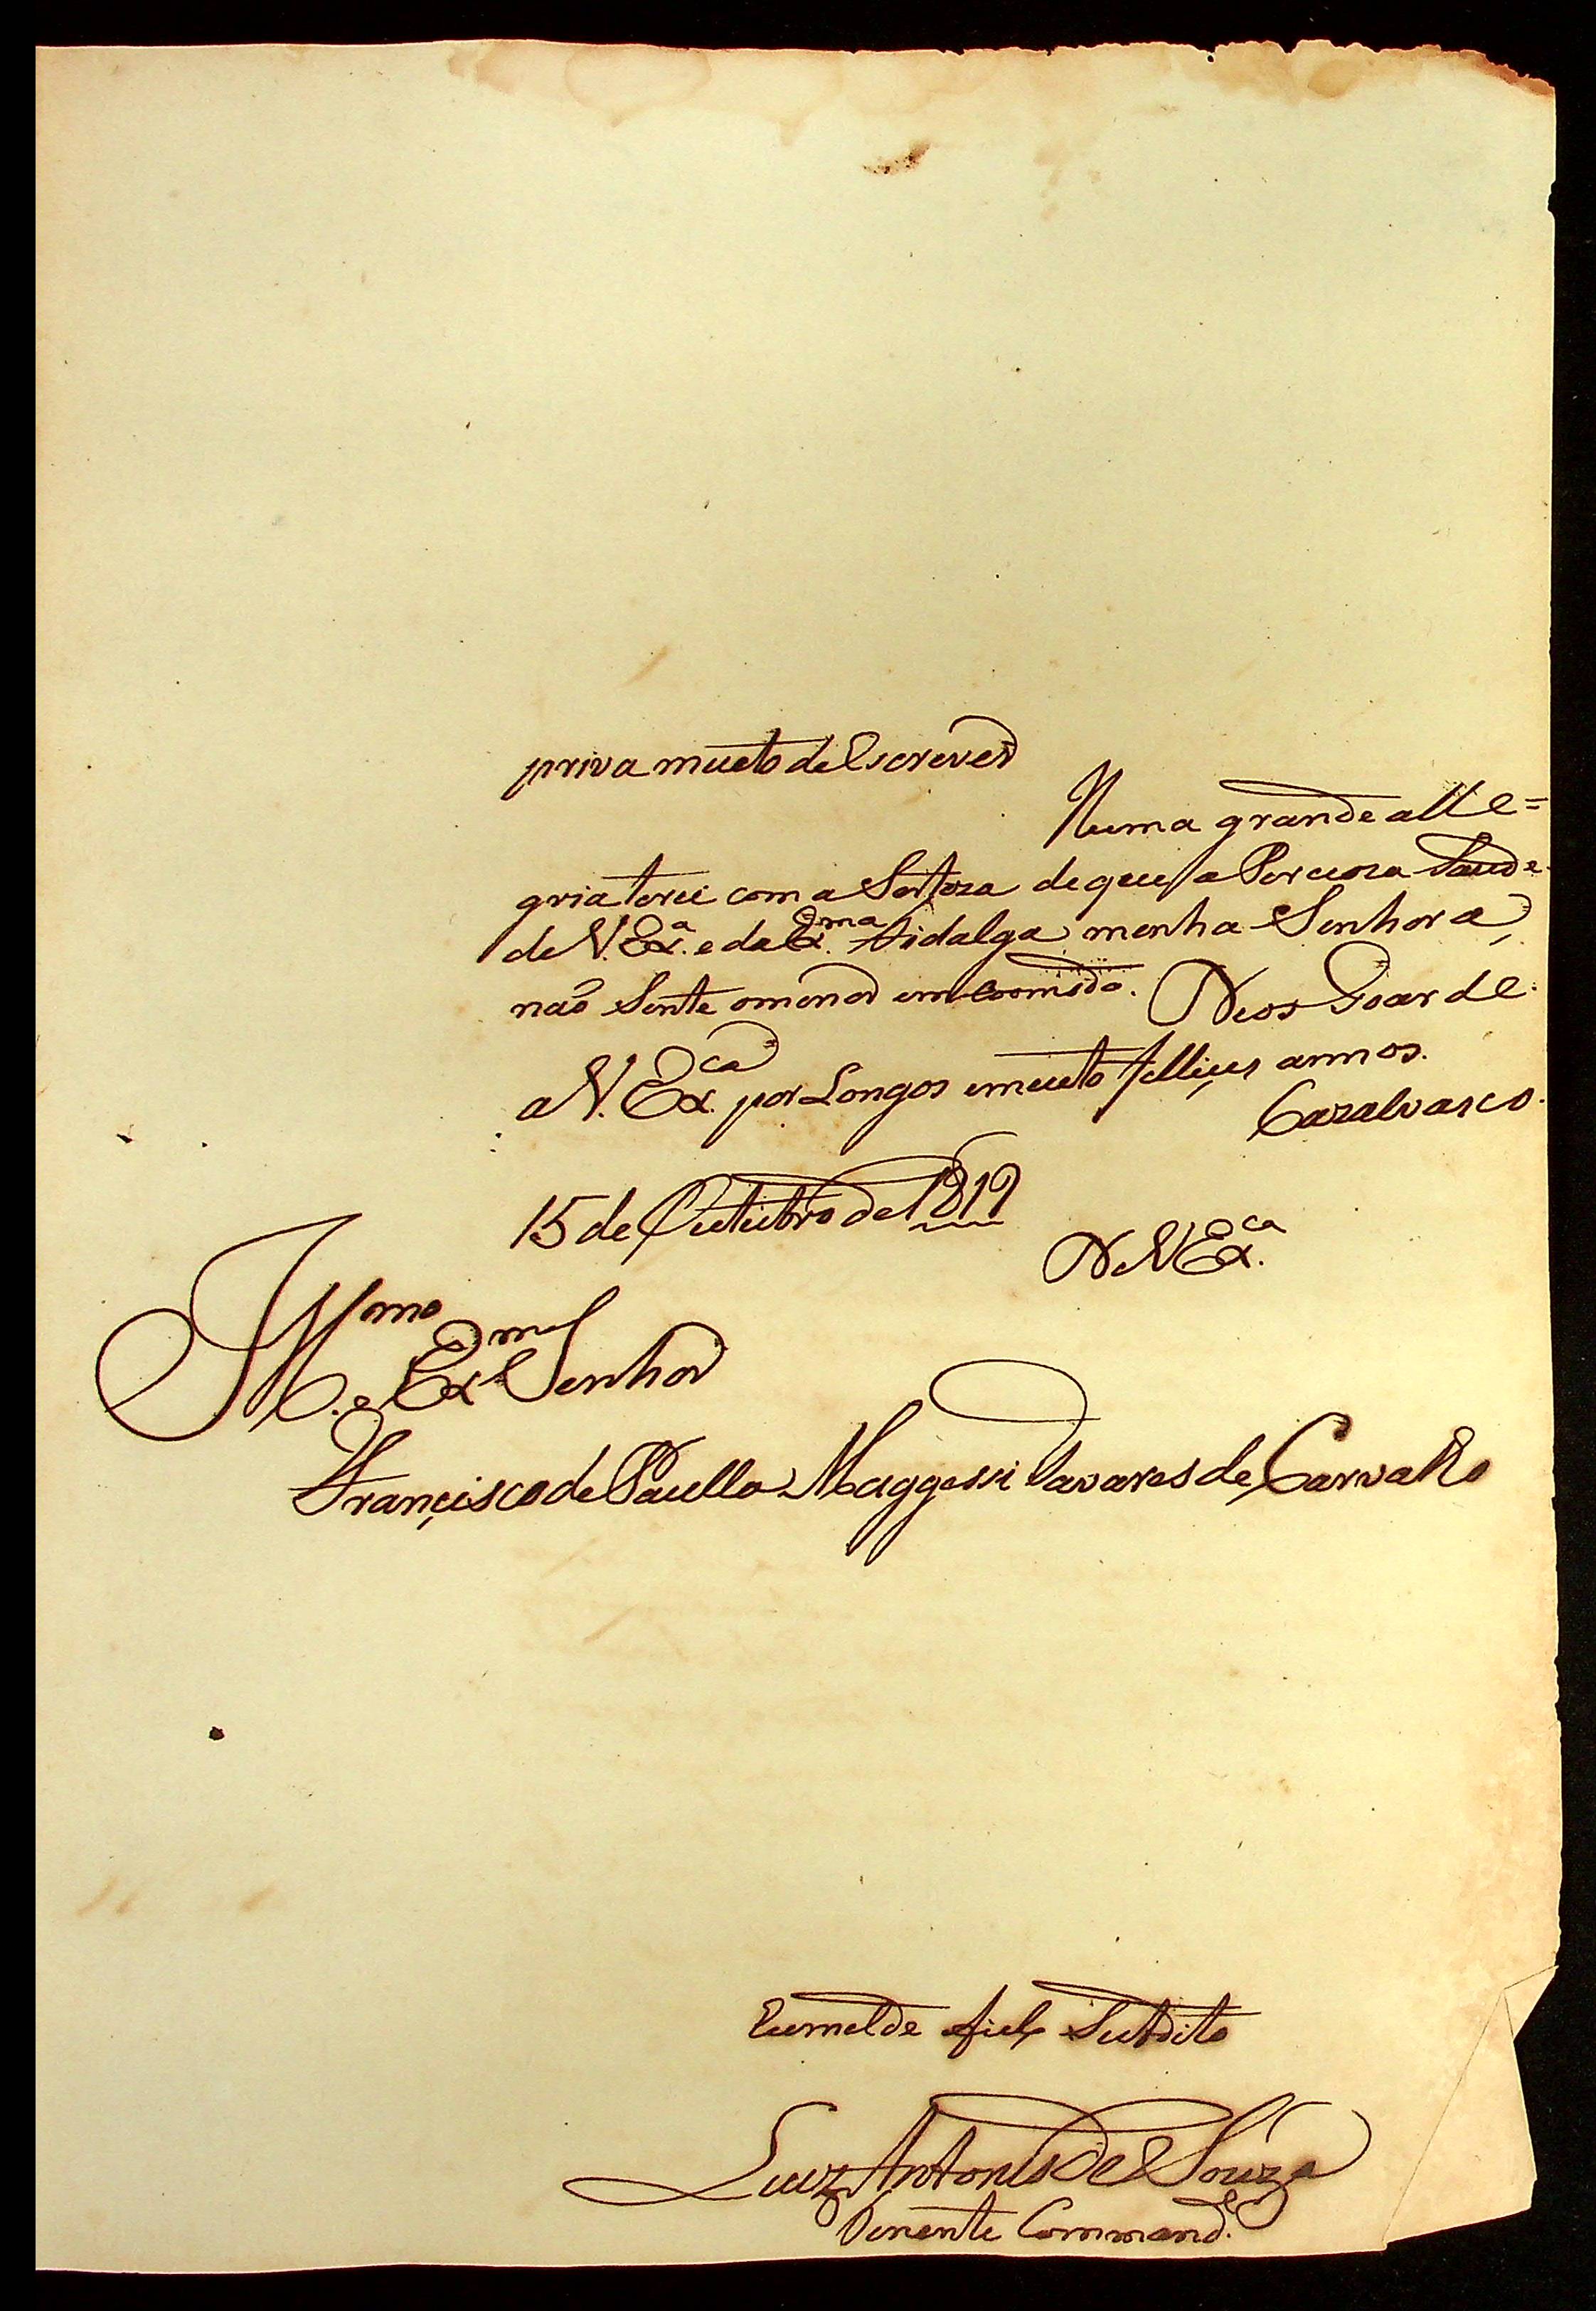 priva mueto de Escrever
Numa grande alle=
gria terei com a Sertoza de que a Percioza Saude
de V. Exª. e da Exma. Fidalga menha Senhora,
não Sente omenor emcoomodo. Deos Goarde
a V. Exca. por Longos emueto fellices annos.
Cazalvasco.
15 de Outubro de 1819
De V Exca.
Illmo. e Exmo Senhor
Françisco de Paulla Maggessi Tavares de Carvalho
Eumelde fiel Subdito
Luiz Antonio de Souza
Tenente Commande.